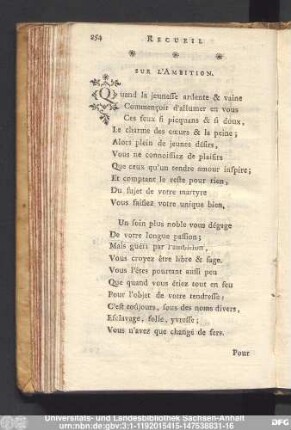 254 RECUEIL
* * *
SUR L'AMBITION.
Quand la jeunesse ardente & vaine
Commençoit d'allumer en vous
Ces feux si picquans & si doux,
Le charme des cœurs & la peine;
Alors plein de jeunes désirs,
Vous ne connoissiez de plaisirs
Que ceux qu'un tendre amour inspire;
Et comptant le reste pour rien,
Du sujet de votre martyre
Vous faisiez votre unique bien.
Un soin plus noble vous dégage
De votre longue passion;
Mais guéri par l'ambition,
Vous croyez être libre & sage.
Vous l'êtes pourtant aussi peu
Que quand vous étiez tout en feu
Pour l'objet de votre tendresse;
C'est toujours, sous des noms divers,
Esclavage, folie, yvresse;
Vous n'avez que changé de fers.
Pour
Universitäts- und Landesbibliothek Sachsen-Anhalt
urn:nbn:de:gbv:3:1-1192015415-147538831-16
DFG